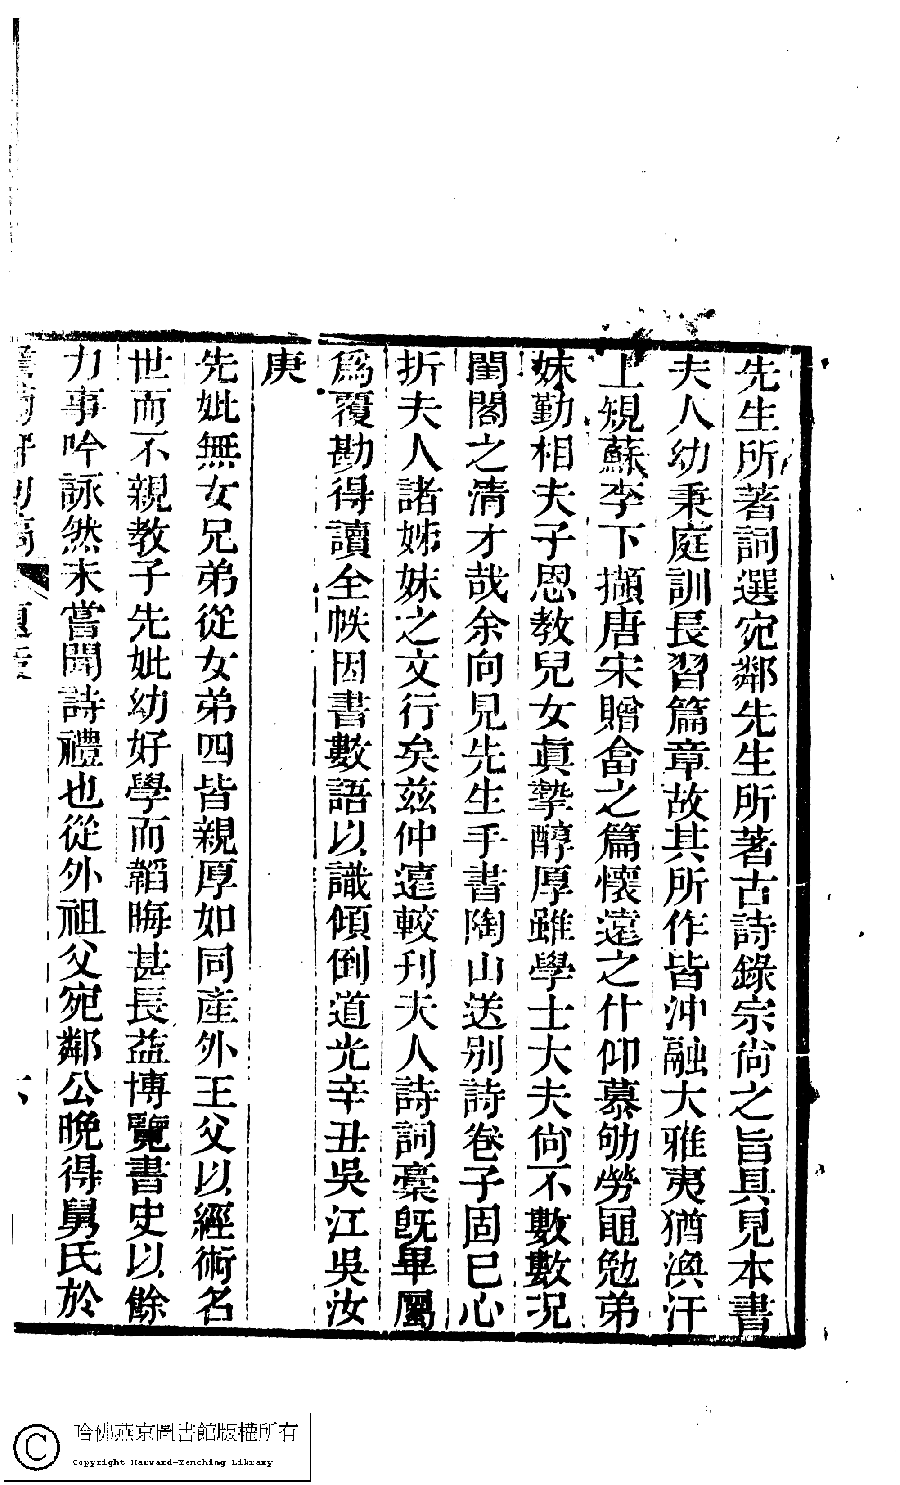 先生所著詞選宛鄰先生所著古詩錄宗尙之旨具見本書
夫人幼秉庭訓長習篇章故其所作皆沖融大雅夷猶渙汗
上規蘇李下擷唐宋贈畣之篇懷遠之什仰慕劬勞黽勉弟
妹勤相夫子恩教兒女眞摯醇厚雖學士大夫尙不數數況
閨閣之清才哉余向見先生手書陶山送別詩卷子固已心
折夫人諸姊妹之文行矣茲仲遠較刋夫人詩詞稾旣畢屬
爲覆勘得讀全帙因書數語以識傾倒道光辛丑吳江吳汝
庚
先妣無女兄弟從女弟四皆親厚如同產外王父以經術名
世而不親教子先妣幼好學而韜晦甚長益博覽書史以餘
力事吟詠然未嘗聞詩禮也從外祖父宛鄰公晚得舅氏於
六
哈佛燕京圖書館版權所有
Copyright Harvard-Yenching Library